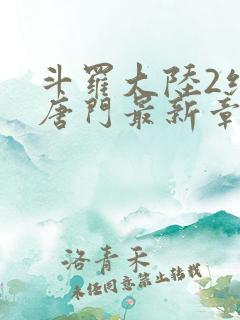 斗羅大陸2
唐門最新章
洛青禾
未经同意禁止转载